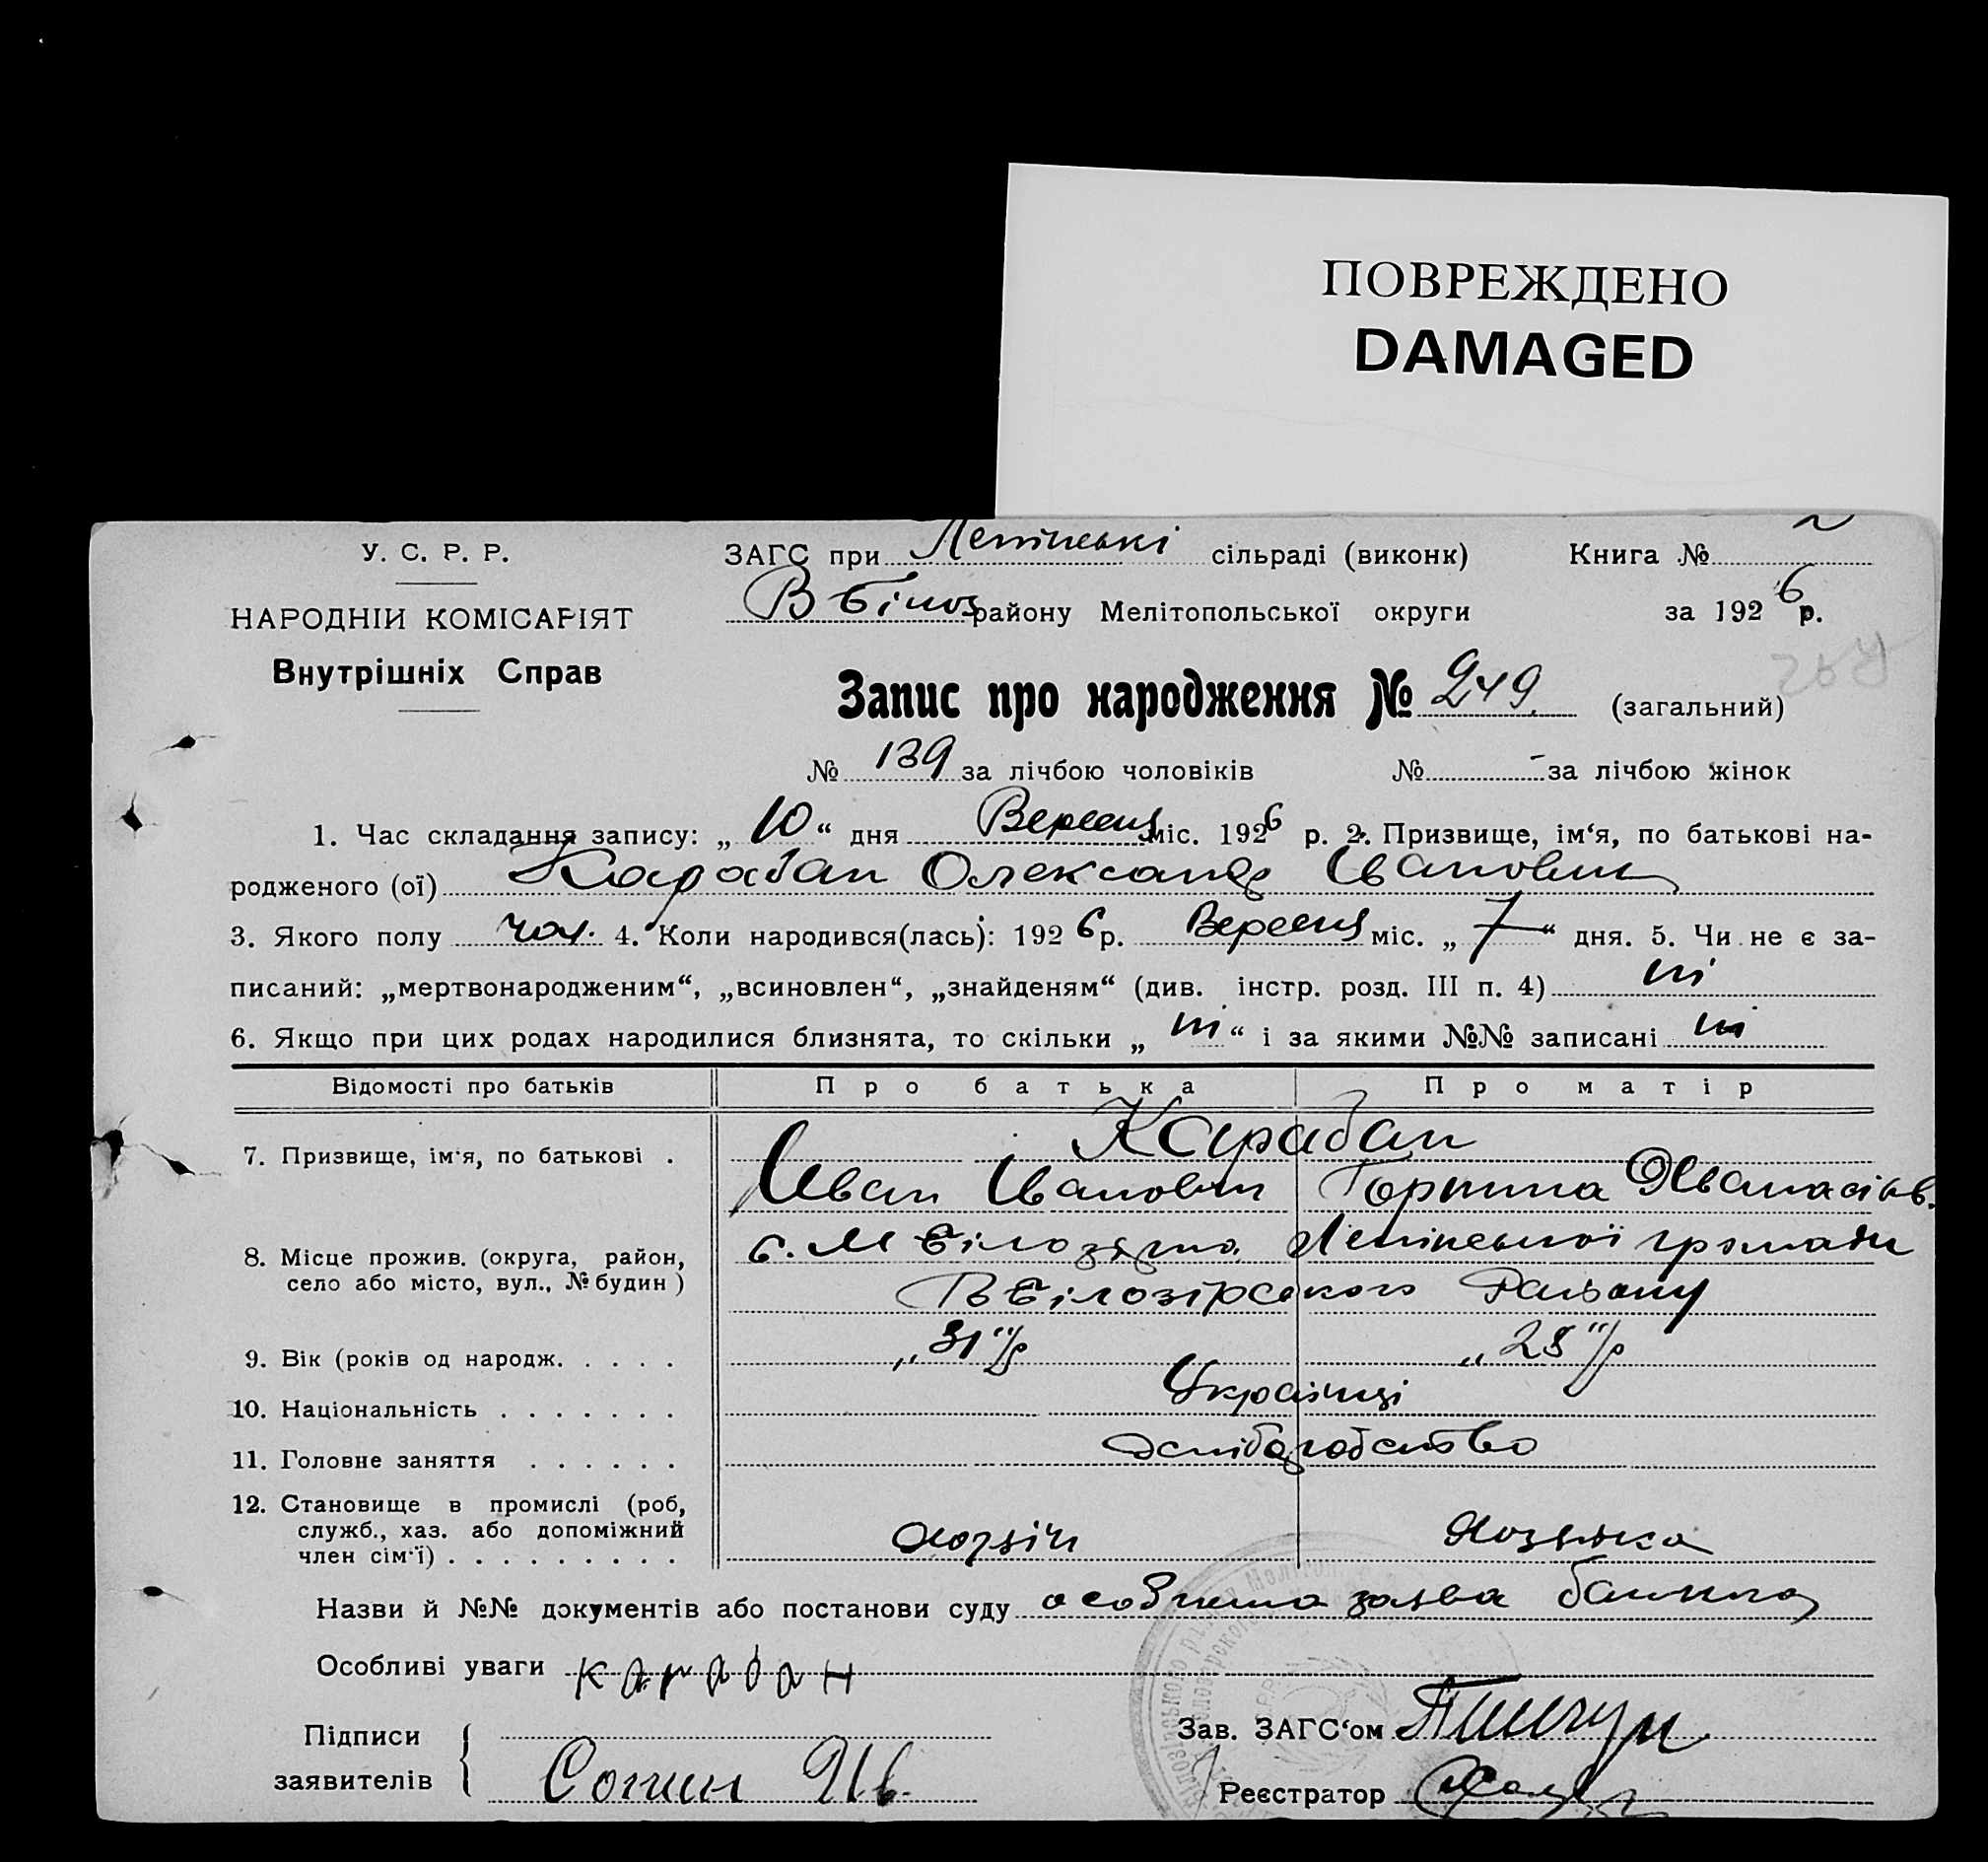 ПОВРЕЖДЕНО
DAMAGED
У. С. Р. Р.
НАРОДНІЙ КОМІСАРІЯТ
Внутрішніх Справ
ЗАГС при Ленінські сільраді (виконк) Книга №
В Білоз району Мелітопольської округи за 1926 р.
Запис про народження № 249. (загальний)
№ 139 за лічбою чоловіків № - за лічбою жінок
1. Час складання запису: „10“ дня Вересня міс. 1926 р. 2. Призвище, ім‘я, по батькові на-
родженого (ої) Карабан Олександр Іванович
3. Якого полу чол. 4. Коли народився(лась): 1926 р. Вересня міс. „7“ дня. 5. Чи не є за-
писаний: „мертвонародженим“, „всиновлен“, „знайденям“ (див. інстр. розд. III п. 4) ні
6. Якщо при цих родах народилися близнята, то скільки „ні“ і за якими №№ записані ні
Відомості про батьків Про батька Про матір
7. Призвище, ім‘я, по батькові . Карабан
Иван Іванович Горпина
8. Місце прожив. (округа, район, село або місто, вул., № будин) с. М Білозірка Ленінської громади
В Білозірського Району
9. Вік (років од народж. . . . . „31“ р „28“ р
10. Національність . . . . . . . Українці
11. Головне заняття . . . . . . хліборобство
12. Становище в промислі (роб,
служб., хаз. або допоміжний
член сім‘ї) . . . . . . . . . хазяін хазяйка
Назви й №№ документів або постанови суду особиста заява батька
Особливі уваги карабан
Підписи
заявителів
Зав. ЗАГС‘ом
Реєстратор